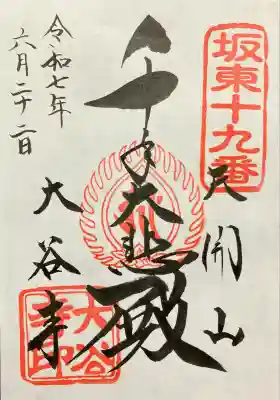 坂東十九番
天開山
千手大悲殿
大谷寺
大谷寺印
令和七年
六月二十二日